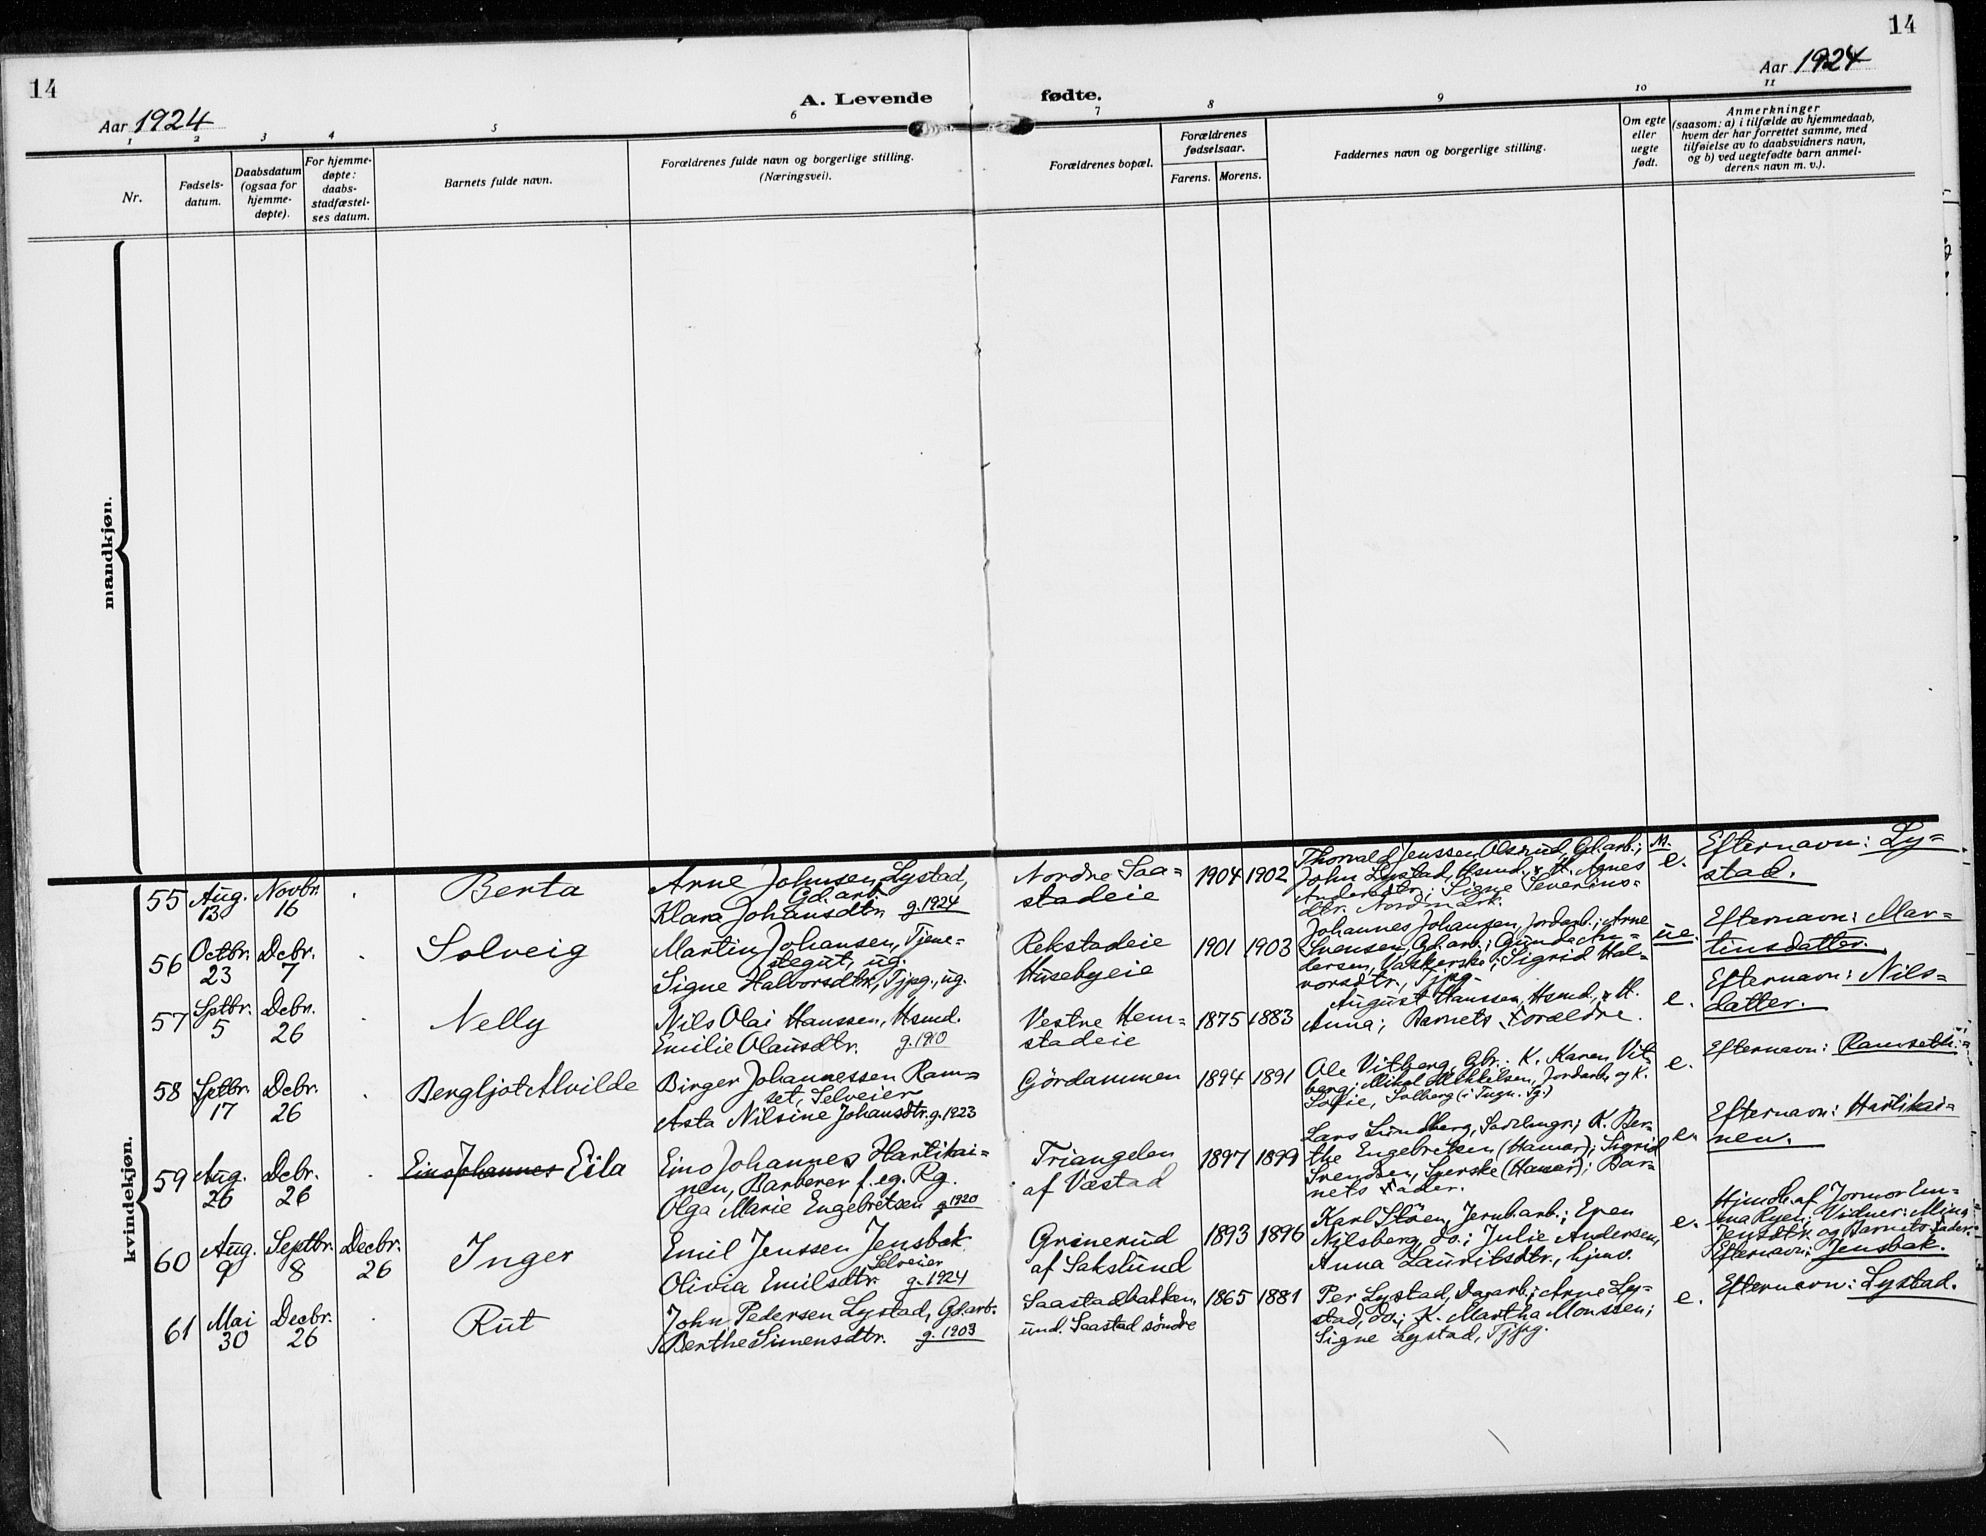 14
14
Aar 1924
Aar 1924
A. Levende fødte.
1 2 3 4 5 6 7 8 9 10 11
Nr.
Fødsels-
datum.
Daabsdatum
(ogsaa for
hjemme-
døpte).
For hjemme-
døpte:
daabs-
stadfæstel-
ses datum.
Barnets fulde navn.
Forældrenes fulde navn og borgerlige stilling.
(Næringsvei).
Forældrenes bopæl.
Forældrenes
fødselsaar.
Farens. Morens.
Faddernes navn og borgerlige stilling.
Om egte
eller
uegte
født.
Anmerkninger
(saasom: a) i tilfælde av hjemmedaab,
hvem der har forrettet samme, med
tilføielse av to daabsvidners navn,
og b) ved uegtefødte barn anmel-
derens navn m. v.).
mandkjøn.
kvindekjøn.
55
Aug.
13
Novbr.
16
Berta
Arne Johnsen Lystad,
Gd.arb.
Klara Johansdtr. g. 1924
Nordre Saa-
stadeie
1904 1902
Thorvald Jenssen Olsrud, Gd.arb.;
John Lystad, Hsmd., & H. Agnes
Andersdtr.; Signe Severins-
dtr. Nordmork.
e.
Efternavn: Ly-
stad.
56
Octbr.
23
Decbr.
7
Solveig
Martin Johansen, Tjene-
stegut, ug.
Signe Halvorsdtr., Tjpg., ug.
Rekstadeie
Husebyeie
1901 1903
Johannes Johansen, Jordarb.; Arne
Svensen, Gd.arb.; Gunda An-
dersen, Vaskerske; Sigrid Hal-
vorsdtr., Tjpg.
ue.
Efternavn: Mar-
tinsdatter.
57
Sptbr.
5
Debr.
26
Nelly
Nils Olai Hanssen, Hsmd.
Emilie Olausdtr. g. 1910
Vestre Hem-
stadeie
1875 1883
August Hanssen, Hsmd., & H.
Anna; Barnets Forældre.
e.
Efternavn: Nils-
datter.
58
Sptbr.
17
Debr.
26
Bergljot Alvilde
Birger Johannessen Ram-
set, Selveier
Asta Nilsine Johansdtr. g. 1923
Gördammen
1894 1891
Ole Vitberg, Gbr.; K. Karen Vit-
berg; Mikal Mikkelsen, Jordarb. og K.
Sofie, Solberg
e.
Efternavn: Ramseth
59
Aug.
26
Debr.
26
Eino Johannes Eila
Eino Johannes Hartikai-
nen, Barberer f. eg. Rg.
Olga Marie Engebretsen g. 1920
Triangelen
af Væstad
1897 1899
Lars Lundberg, Sadelmgr.; K. Ber-
the Engebretsen (Hamar); Sigrid
Svendsen, Syerske (Hamar); Bar-
nets Fader.
e.
Efternavn: Hartikai-
nen.
60
Aug.
9
Septbr.
8
Decbr.
26
Inger
Emil Jenssen Jensbak
Selveier
Olivia Emilsdtr. g. 1924
Grinerud
af Sakslund
1893 1896
Karl Støen, Jernb.arb.; Even
Nilsberg, do.; Julie Andersen,
Anna Lauritsdtr., hjmv.
e.
Hjmdb. af Jormor Em-
ma Ryen; Vidner:
Jensdtr. og Barnets Fader.
Efternavn: Jensbak.
61
Mai
30
Decbr.
26
Rut
John Pedersen Lystad, Gd.arb.
Berthe Simensdtr. g. 1903
Saastadbakken,
und. Saastad søndre
1865 1881
Per Lystad, Dagarb.; Arne Ly-
stad, do.; K. Martha Monssen;
Signe Lystad, Tjpg.
e.
Efternavn: Lystad.